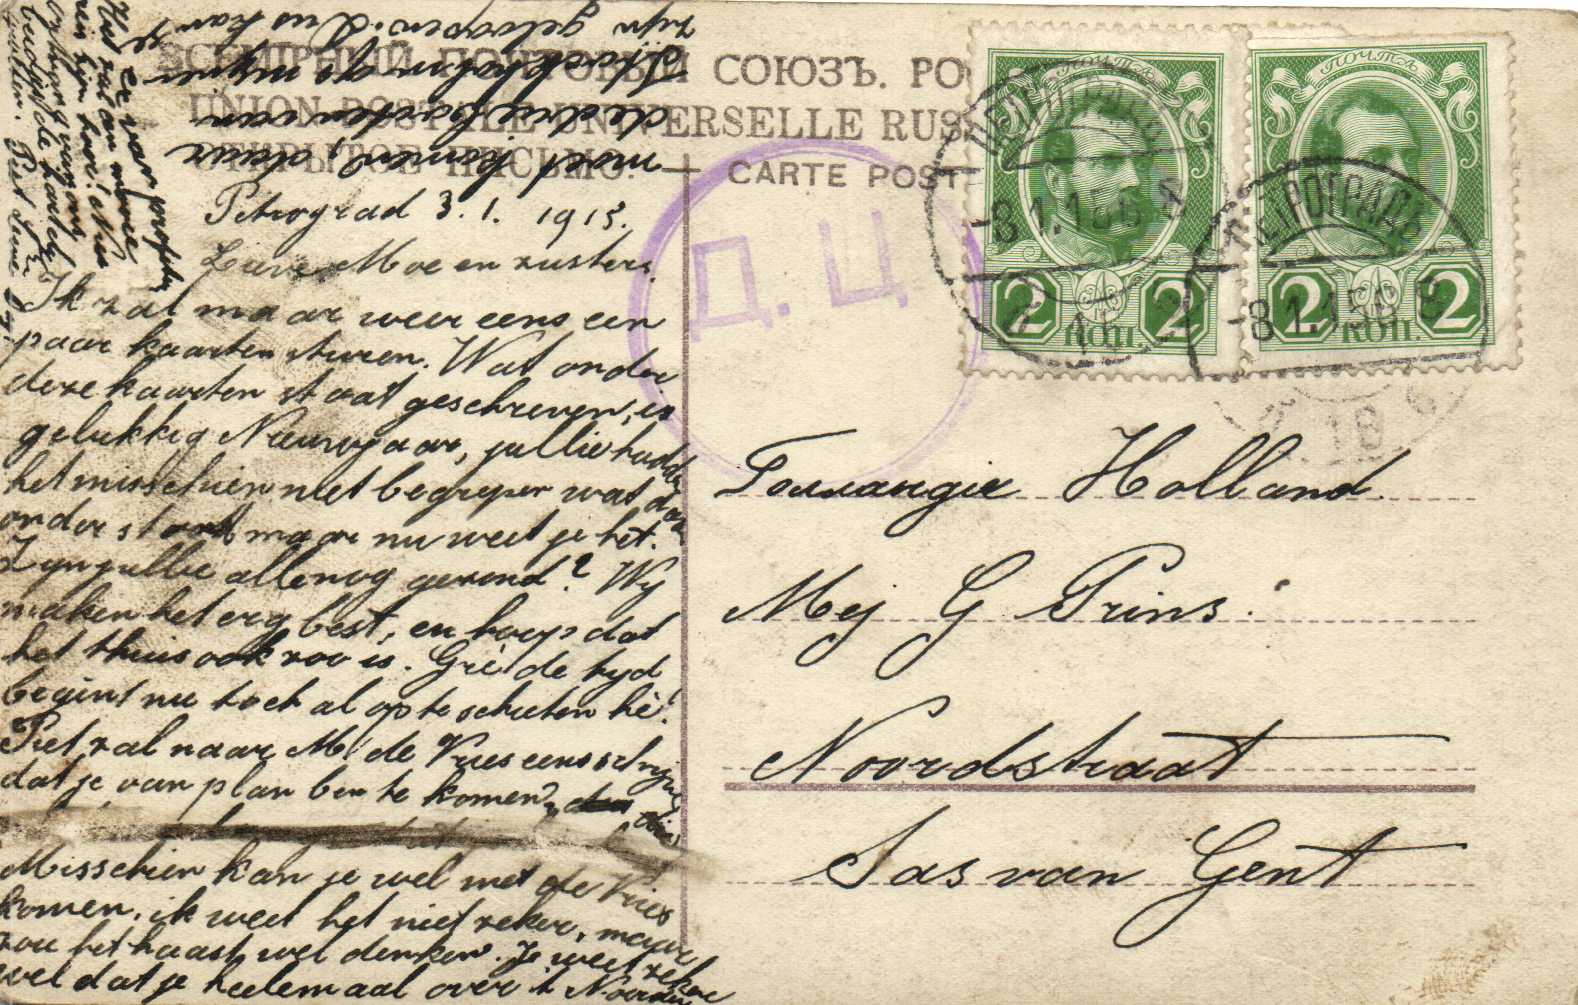 ВСЕМІРНЫЙ ПОЧТОВЫЙ СОЮЗЪ. РО
UNION POSTALE UNIVERSELLE RUS
ОТКРЫТОЕ ПИСЬМО.
CARTE POST
Petrograd 3.1. 1915.
Lieve Moe en zusters.
Ik zal maar weer eens een
paar kaarten sturen. Wat onder
deze kaarten staat geschreven, is
gelukkig Nieuwjaar, jullie hadden
het misschien niet begrepen wat daar
onder stond maar nu weet je het.
Zijn jullie alle nog gezond? Wij
maken het erg best, en hoop dat
het thuis ook zoo is. Griè de tijd
begint nu toch al op te schieten hè!
Piet zal naar M de Vries eens schrijven
dat je van plan ben te komen,
Misschien kan je wel met de Vries
komen, ik weet het niet zeker, maar
zou het haast wel denken. Je weet zeker
wel dat je heelemaal over 't Noorden
moet komen, daar
de drie booten van
Stockholm op mijnen
zijn geloopen. Dus kan
ПОЧТА
2 2
КОП.
ПОЧТА
2 2
КОП.
ПЕТРОГРАДЪ
-8.1.15
ПЕТРОГРАДЪ
-8.1.15
Д. Ц
Голландія Holland.
Mej G Prins.
Noordstraat
Sas van Gent